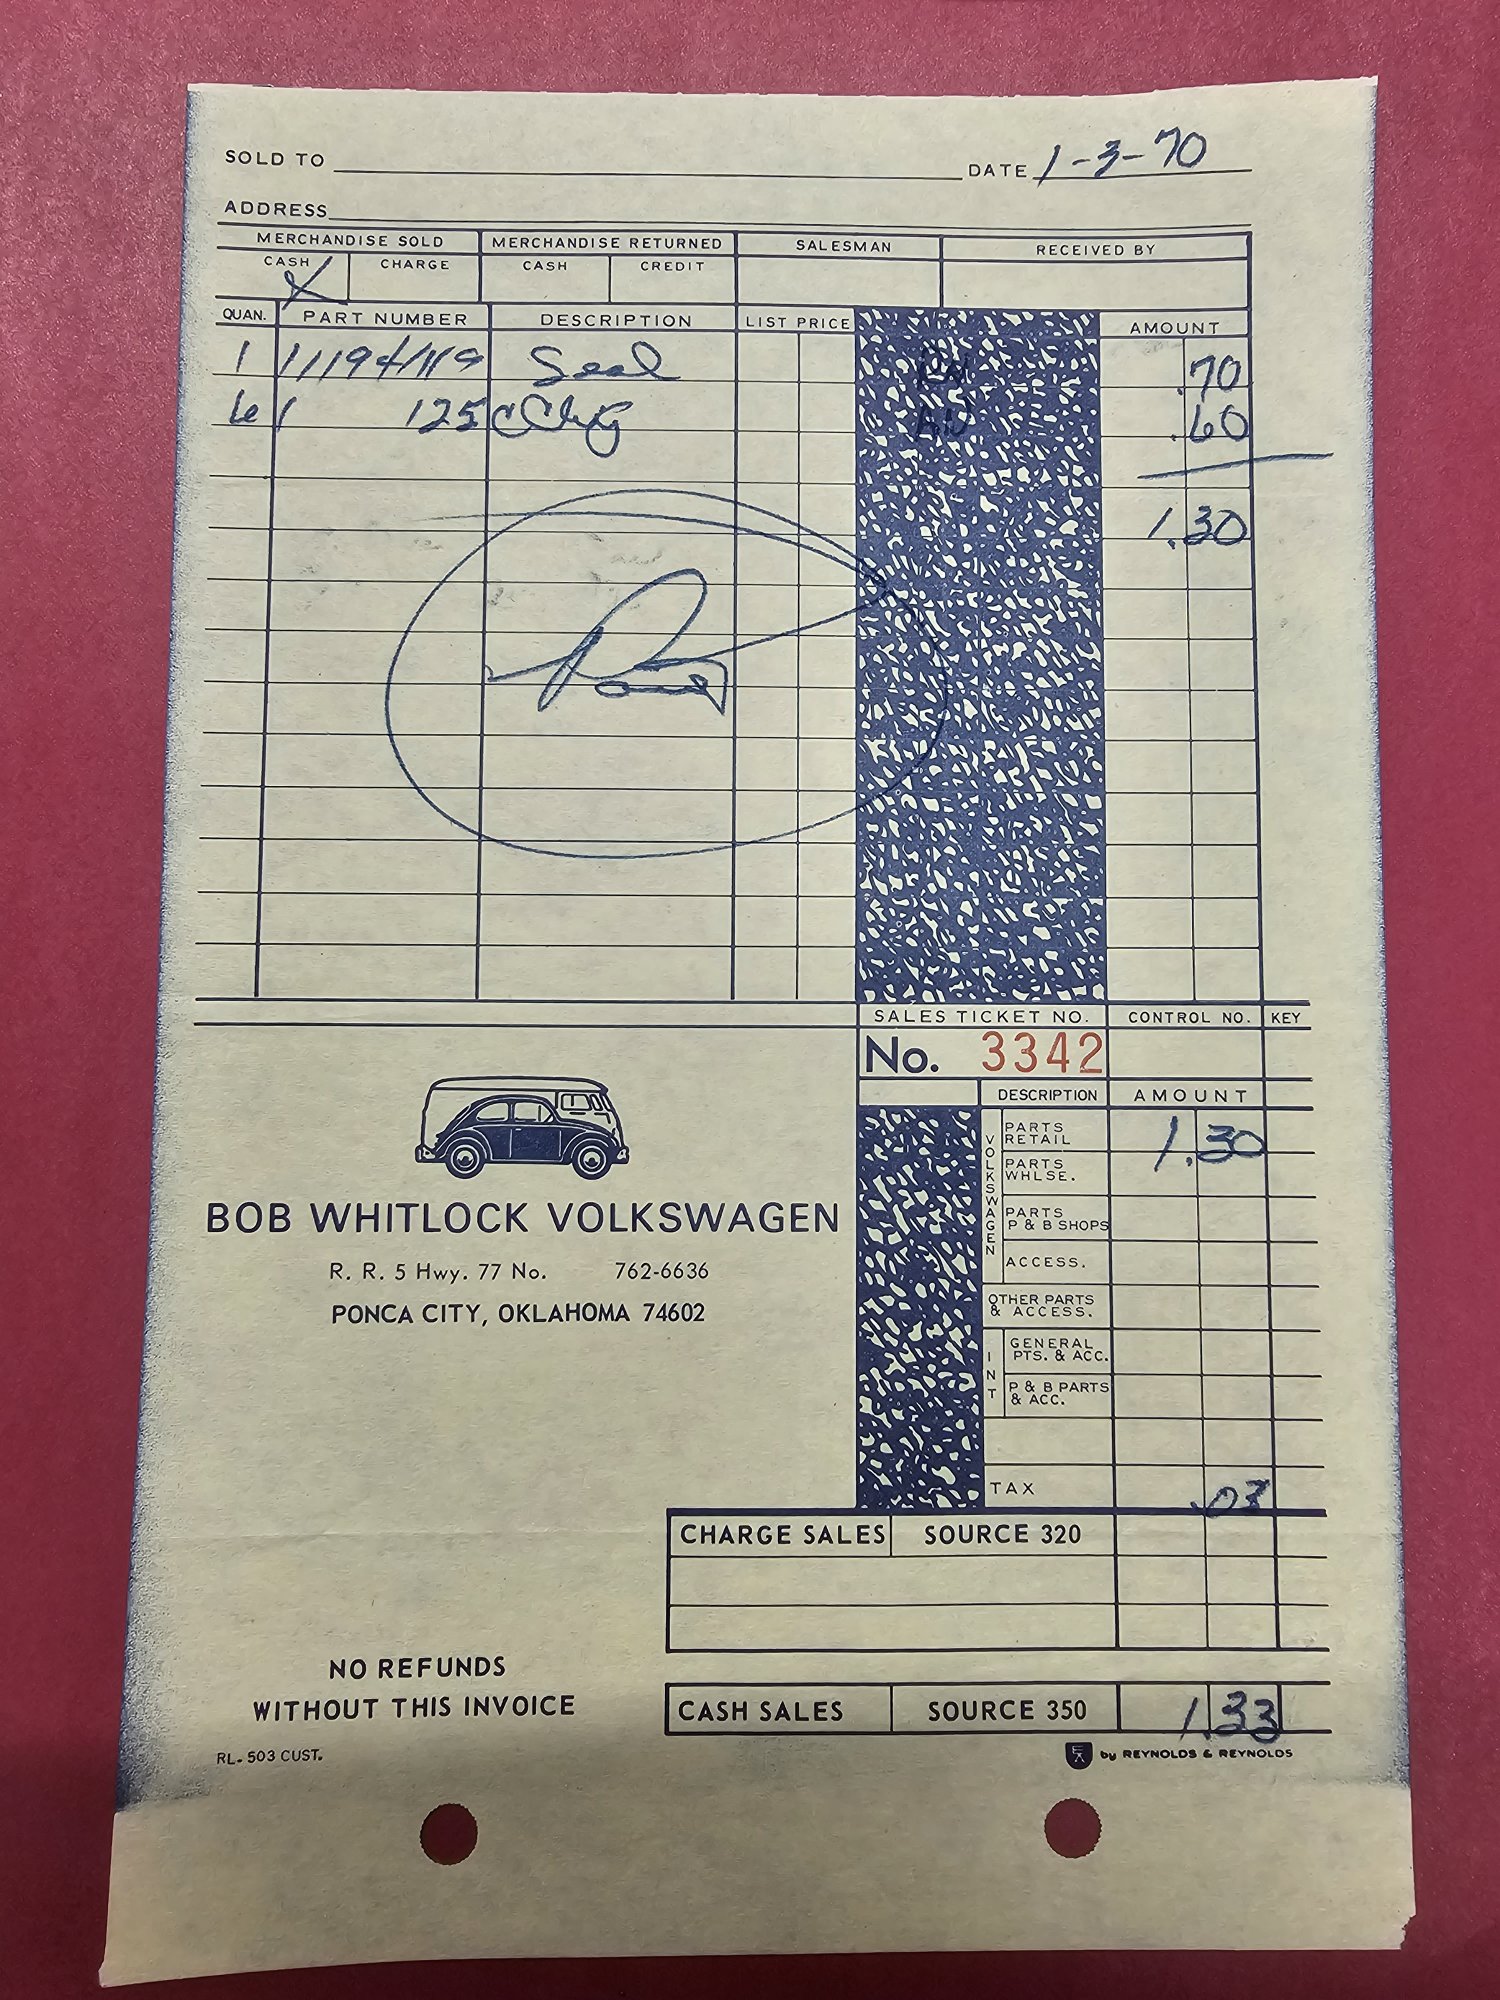 SOLD TO DATE 1-3-70
ADDRESS
MERCHANDISE SOLD MERCHANDISE RETURNED SALESMAN RECEIVED BY
CASH CHARGE CASH CREDIT
X
QUAN. PART NUMBER DESCRIPTION LIST PRICE AMOUNT
1 Seal .70
6 .60
1.30
SALES TICKET NO. CONTROL NO. KEY
No. 3342
DESCRIPTION AMOUNT
VOLKSWAGEN
PARTS RETAIL 1.30
PARTS WHLSE.
PARTS P & B SHOPS
ACCESS.
OTHER PARTS & ACCESS.
INT
GENERAL PTS. & ACC.
P & B PARTS & ACC.
TAX .03
BOB WHITLOCK VOLKSWAGEN
R. R. 5 Hwy. 77 No. 762-6636
PONCA CITY, OKLAHOMA 74602
CHARGE SALES SOURCE 320
NO REFUNDS
WITHOUT THIS INVOICE
CASH SALES SOURCE 350 1.33
RL-503 CUST.
by REYNOLDS & REYNOLDS